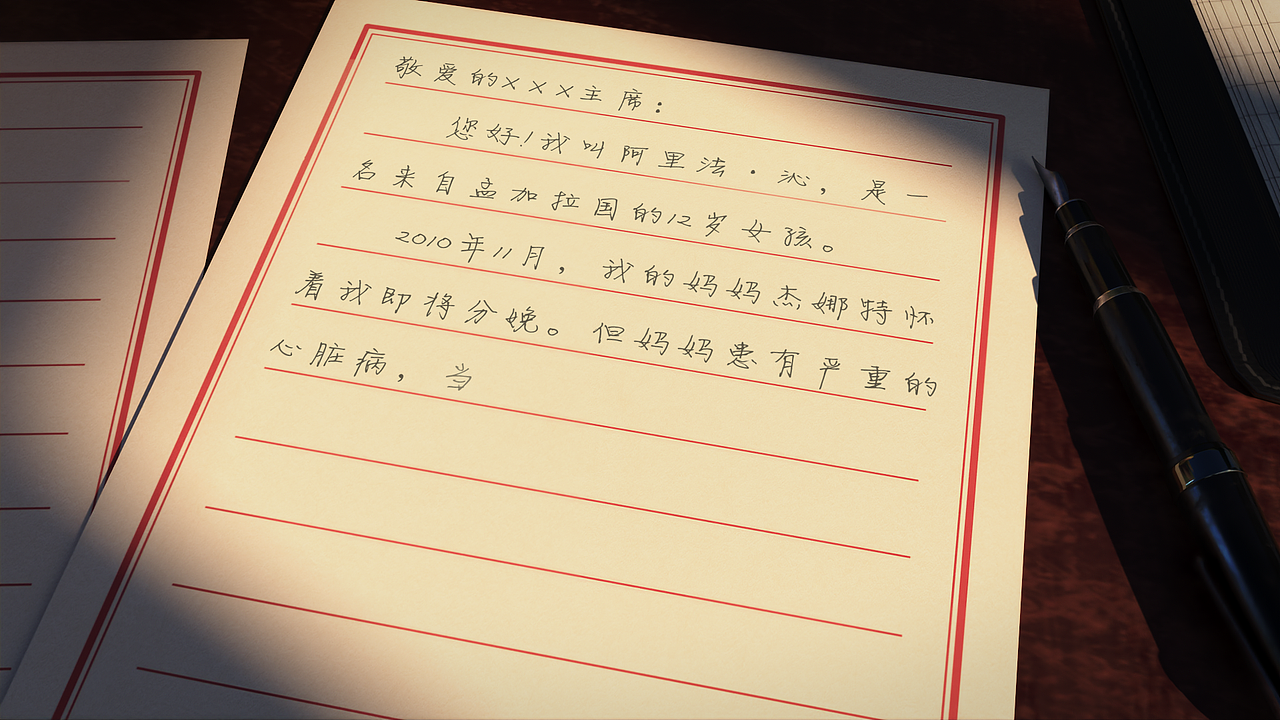 敬爱的×××主席：
您好！我叫阿里法·沁，是一
名来自孟加拉国的12岁女孩。
2010年11月，我的妈妈杰娜特怀
着我即将分娩。但妈妈患有严重的
心脏病，当